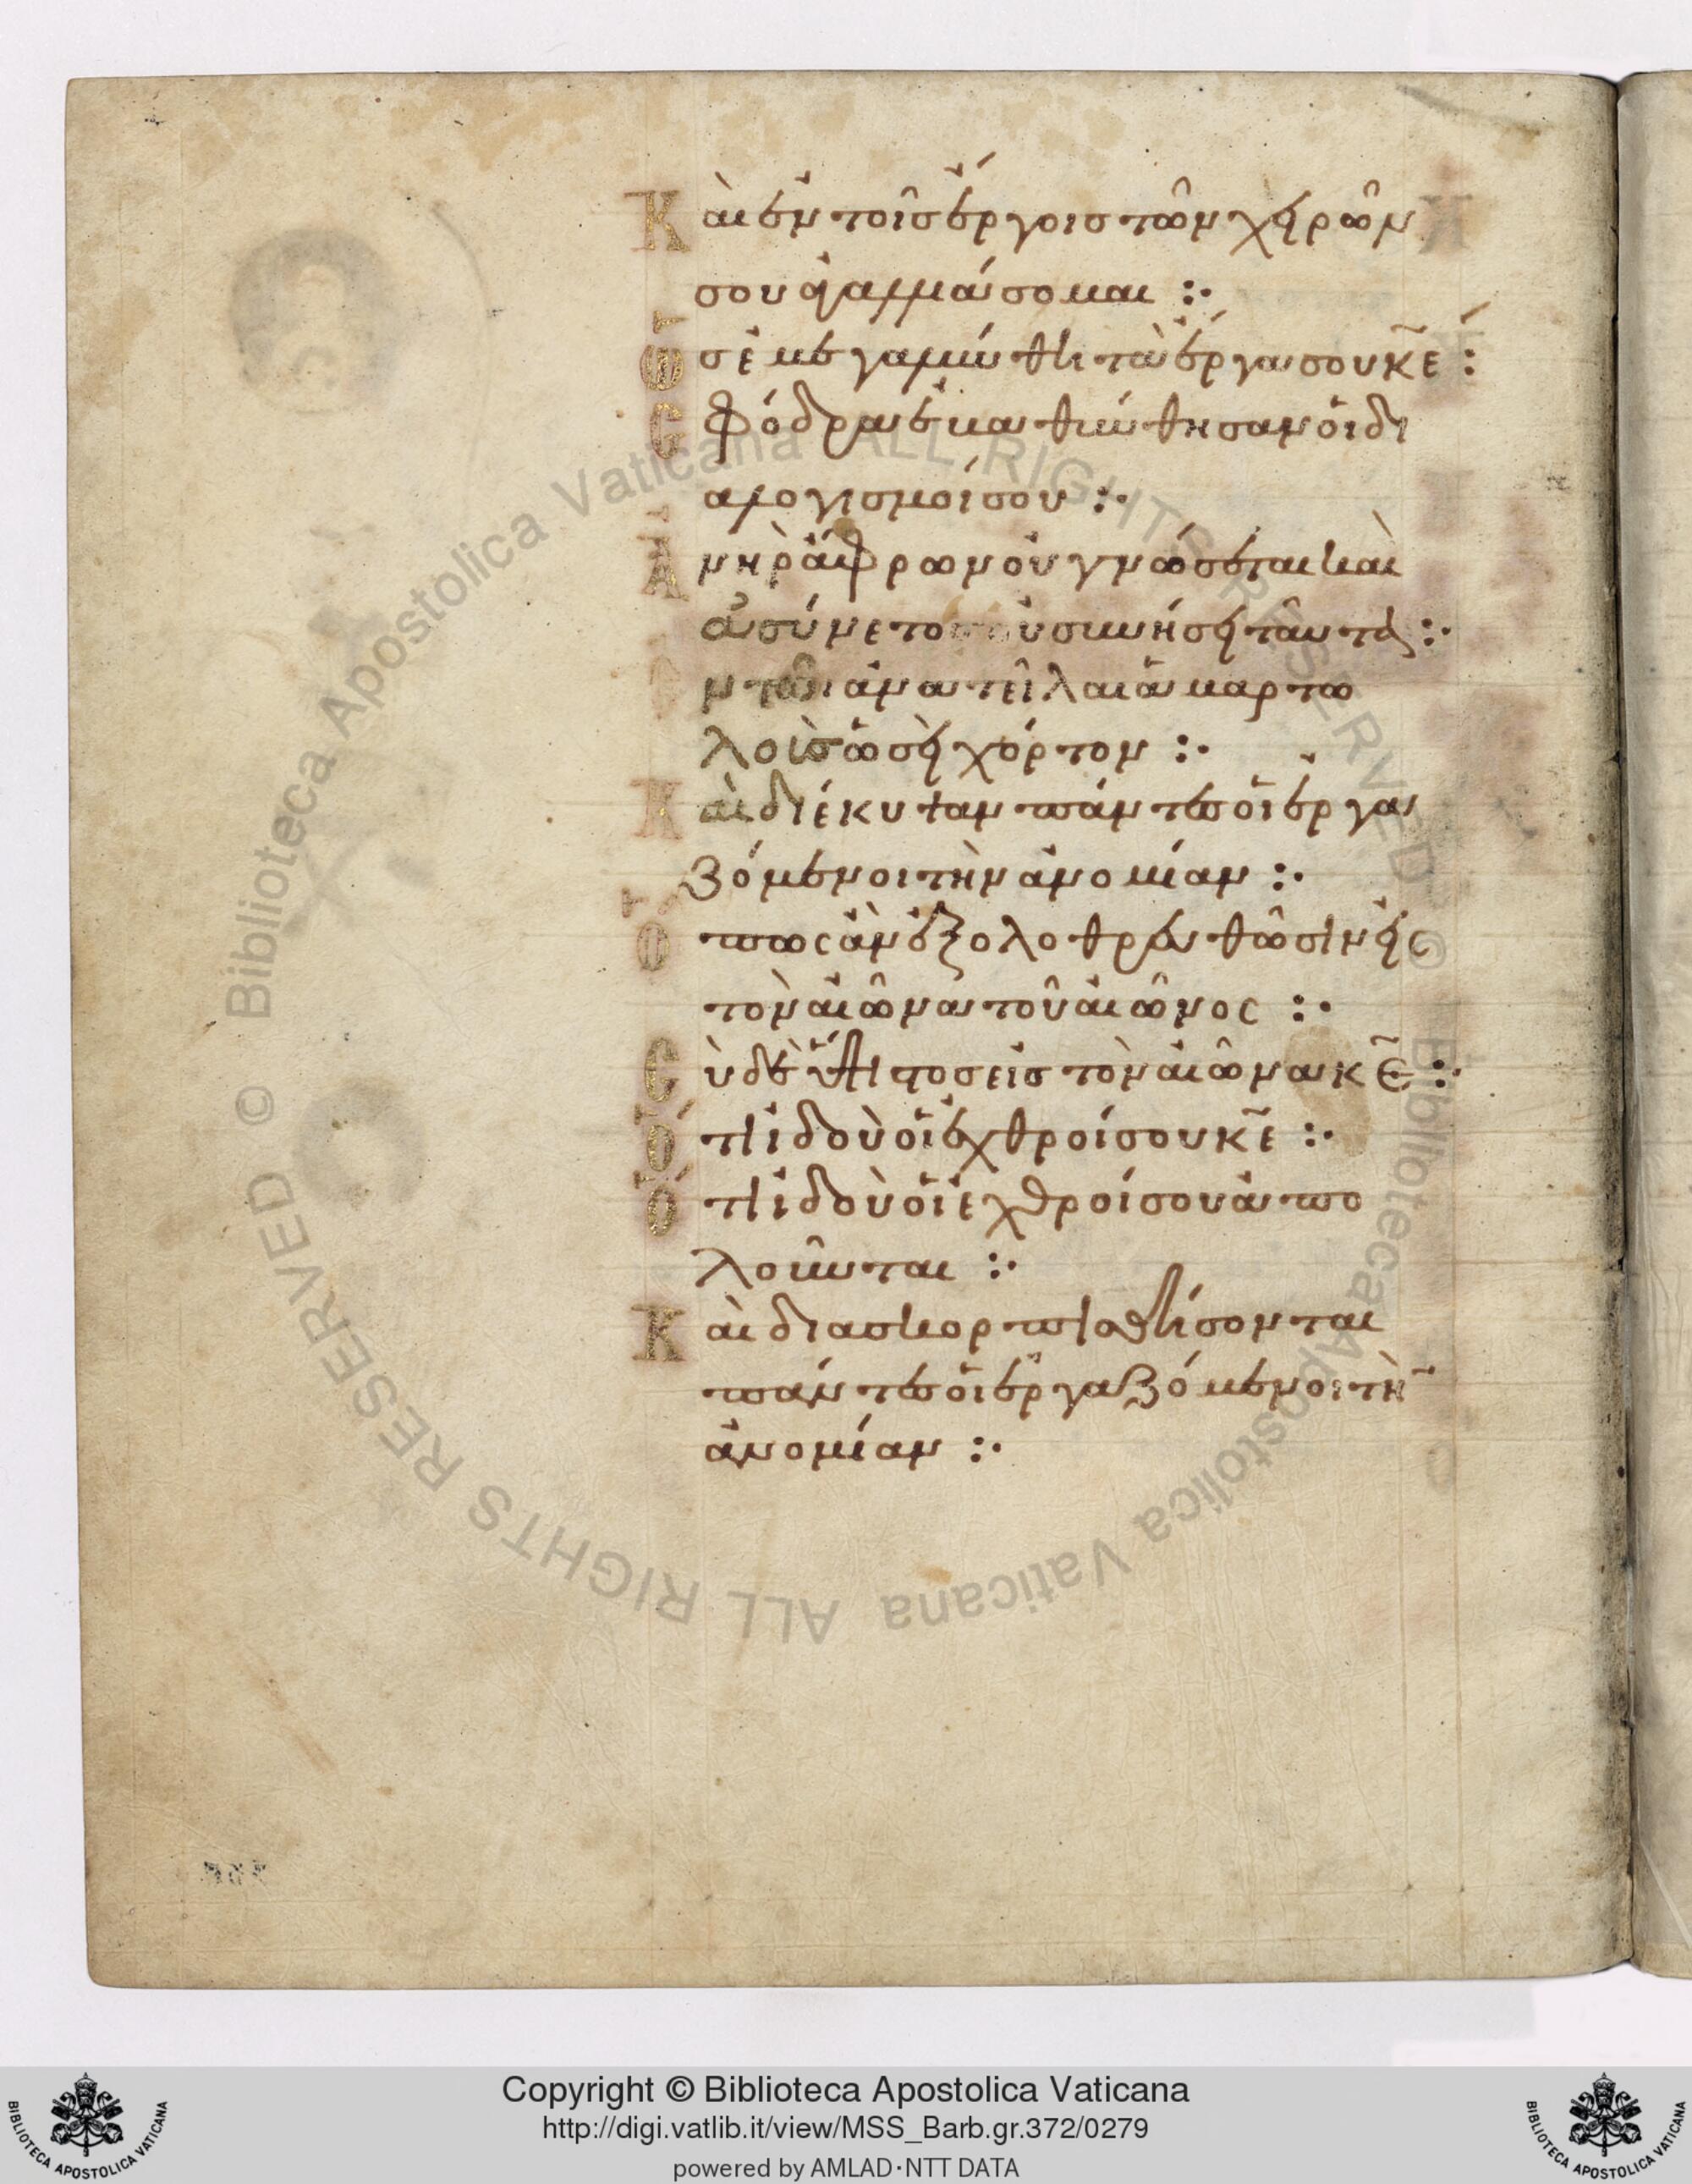 Καὶ ἐν τοῖς ἔργοις τῶν χειρῶν
σου ἀγαλλιάσομαι :·
Ὡς ἐμεγαλύνθη τὰ ἔργα σου κ̅ε̅ :
σφόδρα ἐβαθύνθησαν οἱ δι
αλογισμοί σου :·
Ἀνὴρ ἄφρων οὐ γνώσεται καὶ
ἀσύνετος οὐ συνήσει ταῦτα :·
Ἐν τῶι ἀνατεῖλαι ἁμαρτω
λοὺς ὡσεὶ χόρτον :·
Καὶ διέκυψαν πάντες οἱ ἐργα
ζόμενοι τὴν ἀνομίαν :·
Ὅπως ἂν ἐξολοθρευθῶσιν εἰς
τὸν αἰῶνα τοῦ αἰῶνος :·
Σὺ δὲ ὕψιστος εἰς τὸν αἰῶνα κ̅ε̅ :·
Ὅτι ἰδοὺ οἱ ἐχθροί σου κ̅ε̅ :·
Ὅτι ἰδοὺ οἱ ἐχθροί σου ἀπο
λοῦνται :·
Καὶ διασκορπισθήσονται
πάντες οἱ ἐργαζόμενοι τὴν
ἀνομίαν :·
© Biblioteca Apostolica Vaticana ALL RIGHTS RESERVED © Biblioteca Apostolica Vaticana ALL RIGHTS RESERVED
Copyright © Biblioteca Apostolica Vaticana
http://digi.vatlib.it/view/MSS_Barb.gr.372/0279
powered by AMLAD·NTT DATA
BIBLIOTECA APOSTOLICA VATICANA
BIBLIOTECA APOSTOLICA VATICANA